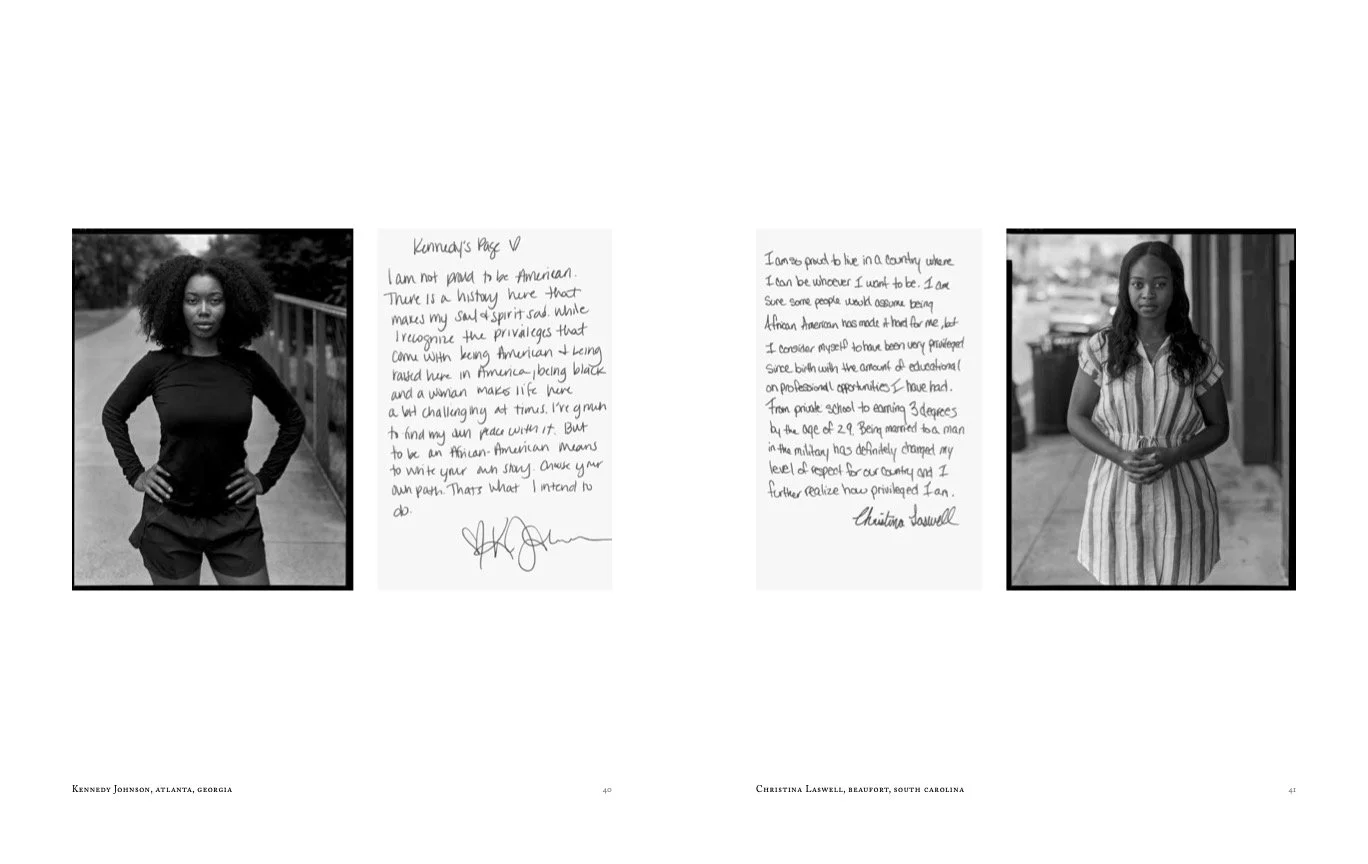 Kennedy's Page ♡
I am not proud to be American.
There is a history here that
makes my soul & spirit sad. While
I recognize the privileges that
come with being American & being
raised here in America, being black
and a woman makes life here
a lot challenging at times. I've grown
to find my own peace with it. But
to be an African-American means
to write your own story. Choose your
own path. That's what I intend to
do.
K Johnson
Kennedy Johnson, Atlanta, Georgia
40
I am so proud to live in a country where
I can be whoever I want to be. I am
sure some people would assume being
African American has made it hard for me, but
I consider myself to have been very privileged
since birth with the amount of educational
on professional opportunities I have had.
From private school to earning 3 degrees
by the age of 29. Being married to a man
in the military has definitely changed my
level of respect for our country and I
further realize how privileged I am.
Christina Laswell
Christina Laswell, Beaufort, South Carolina
41